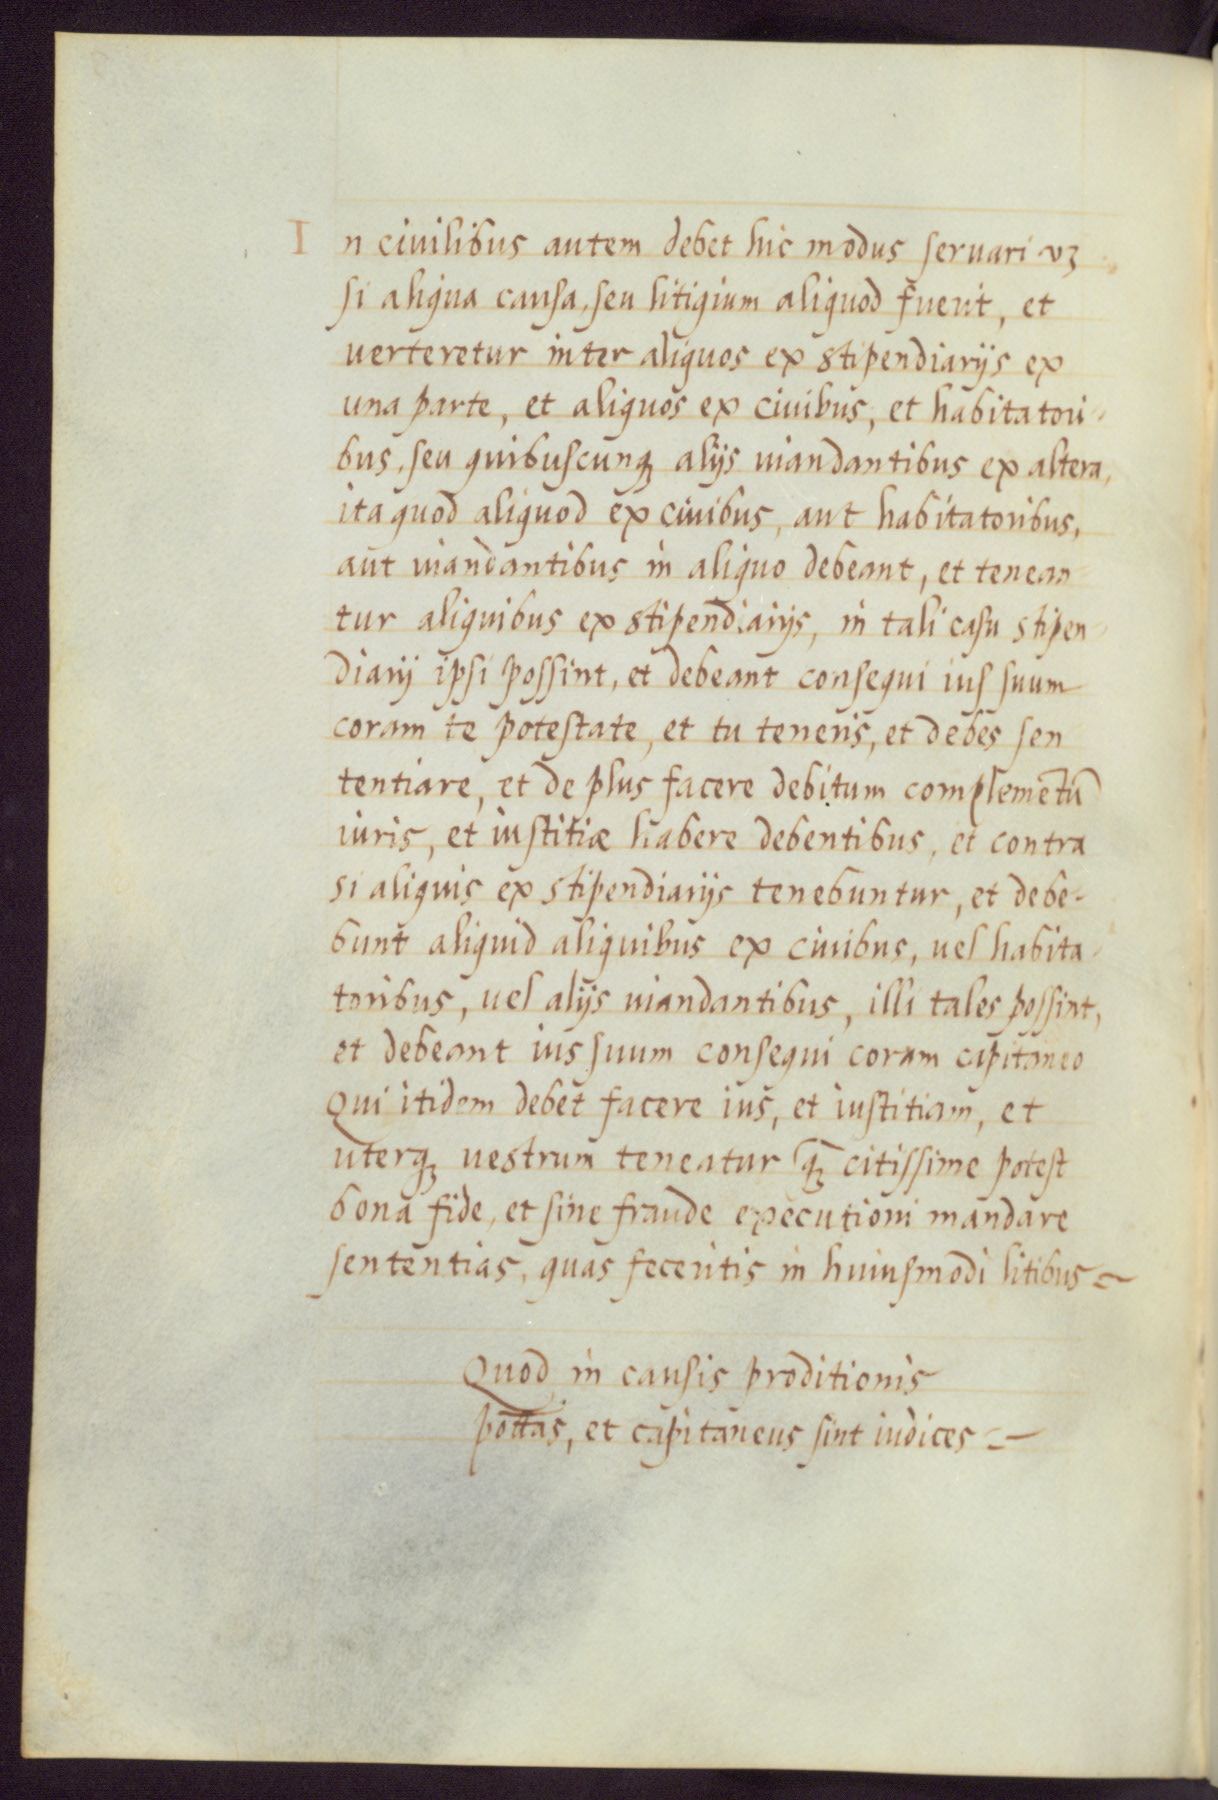 In ciuilibus autem debet hic modus seruari vꝫ
si aliqua causa, seu litigium aliquod fuerit, et
uerteretur inter aliquos ex stipendiarijs ex
una parte, et aliquos ex ciuibus, et habitatori-
bus, seu quibuscunqꝫ alijs uiandantibus ex altera,
ita quod aliquod ex ciuibus, aut habitatoribus,
aut uiandantibus in aliquo debeant, et tenean
tur aliquibus ex stipendiarijs, in tali casu stipen
diarij ipsi possint, et debeant consequi ius suum
coram te potestate, et tu teneris, et debes sen
tentiare, et de plus facere debitum complemẽtũ
iuris, et iustitiæ habere debentibus, et contra
si aliquis ex stipendiarijs tenebuntur, et debe-
bunt aliquid aliquibus ex ciuibus, uel habita-
toribus, uel alijs uiandantibus, illi tales possint,
et debeant ius suum consequi coram capitaneo
Qui itidem debet facere ius, et iustitiam, et
uterqꝫ uestrum teneatur qꝫ̃ citissime potest
bona fide, et sine fraude executioni mandare
sententias, quas feceritis in huiusmodi litibus
Quod in causis proditionis
pottas, et capitaneus sint iudices